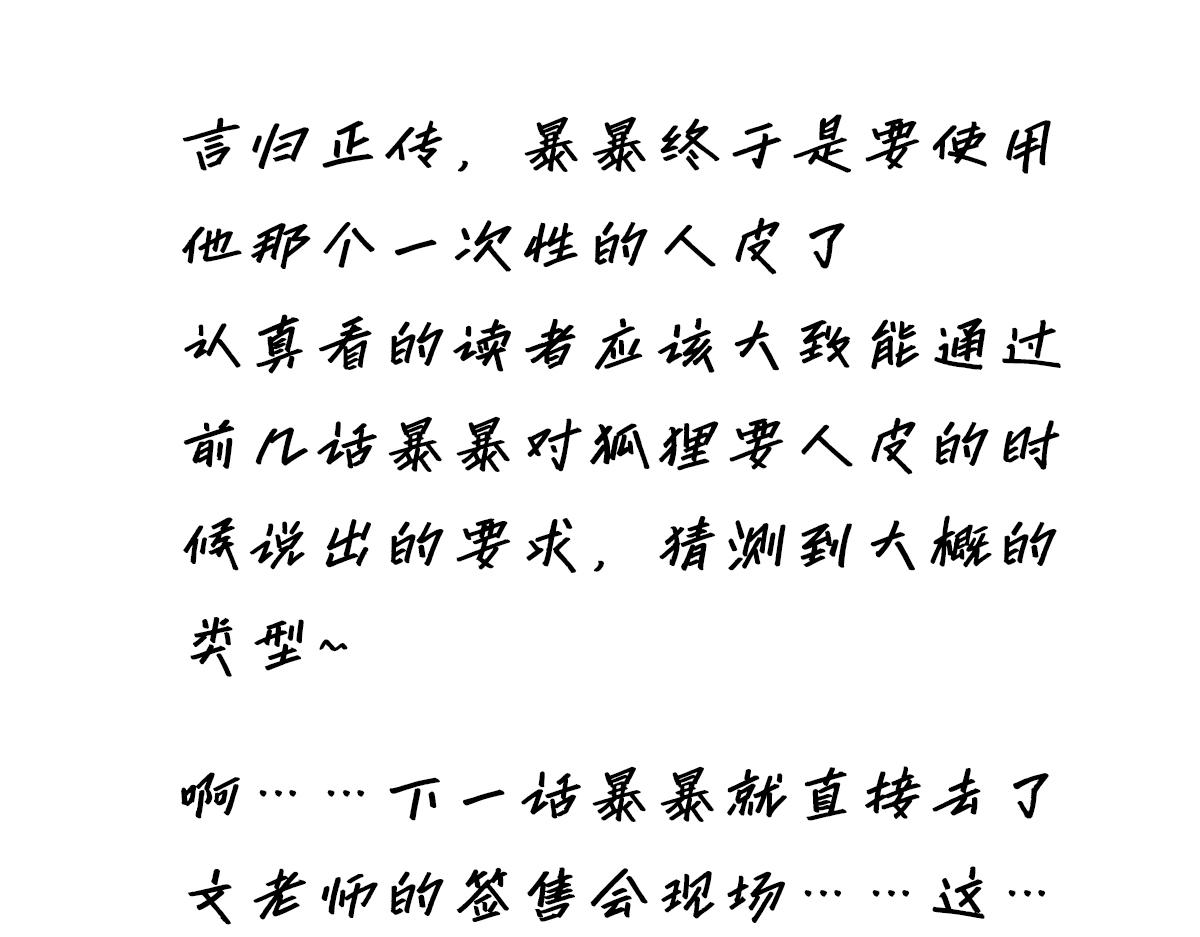 言归正传，暴暴终于是要使用
他那个一次性的人皮了
认真看的读者应该大致能通过
前几话暴暴对狐狸要人皮的时
候说出的要求，猜测到大概的
类型~
啊……下一话暴暴就直接去了
文老师的签售会现场……这…